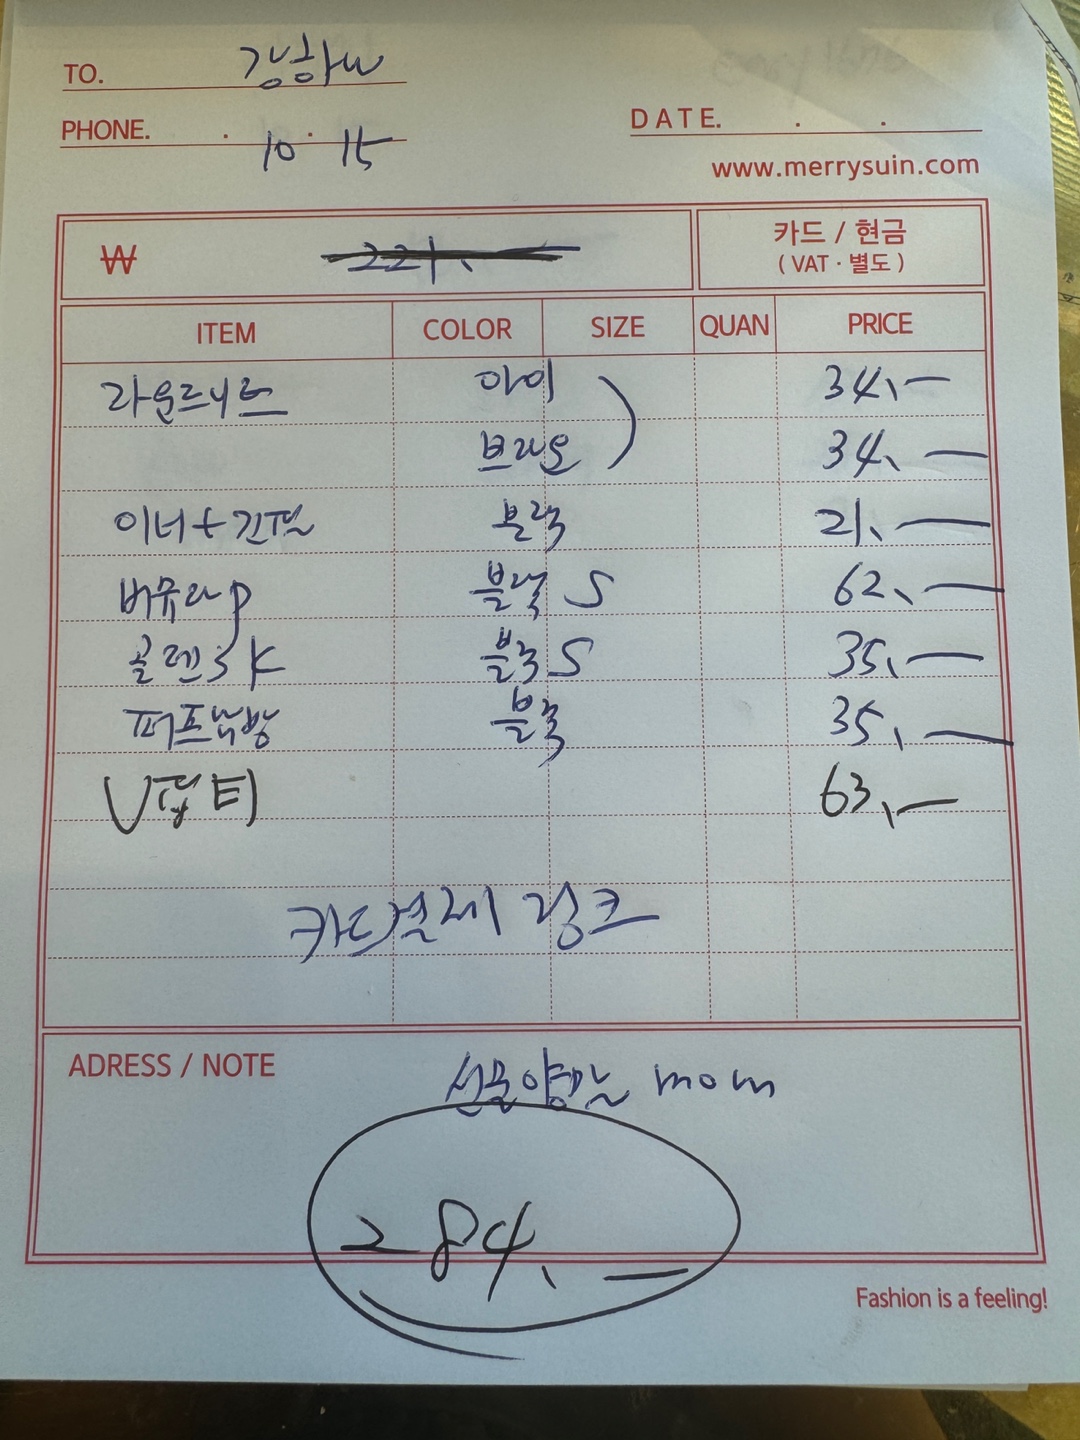 TO. 강하나
PHONE. . .
10 15
DATE. . .
www.merrysuin.com
₩ 221.
카드 / 현금
( VAT · 별도 )
ITEM COLOR SIZE QUAN PRICE
라운드니트 아이 34,—
브라운 34,—
이너+긴팔 블랙 21,—
버뮤다P 블랙 S 62,—
골덴SK 블랙 S 35,—
퍼프남방 블랙 35,—
V랍티 63,—
카드결제 링크
ADRESS / NOTE
선물양말 mom
284,—
Fashion is a feeling!